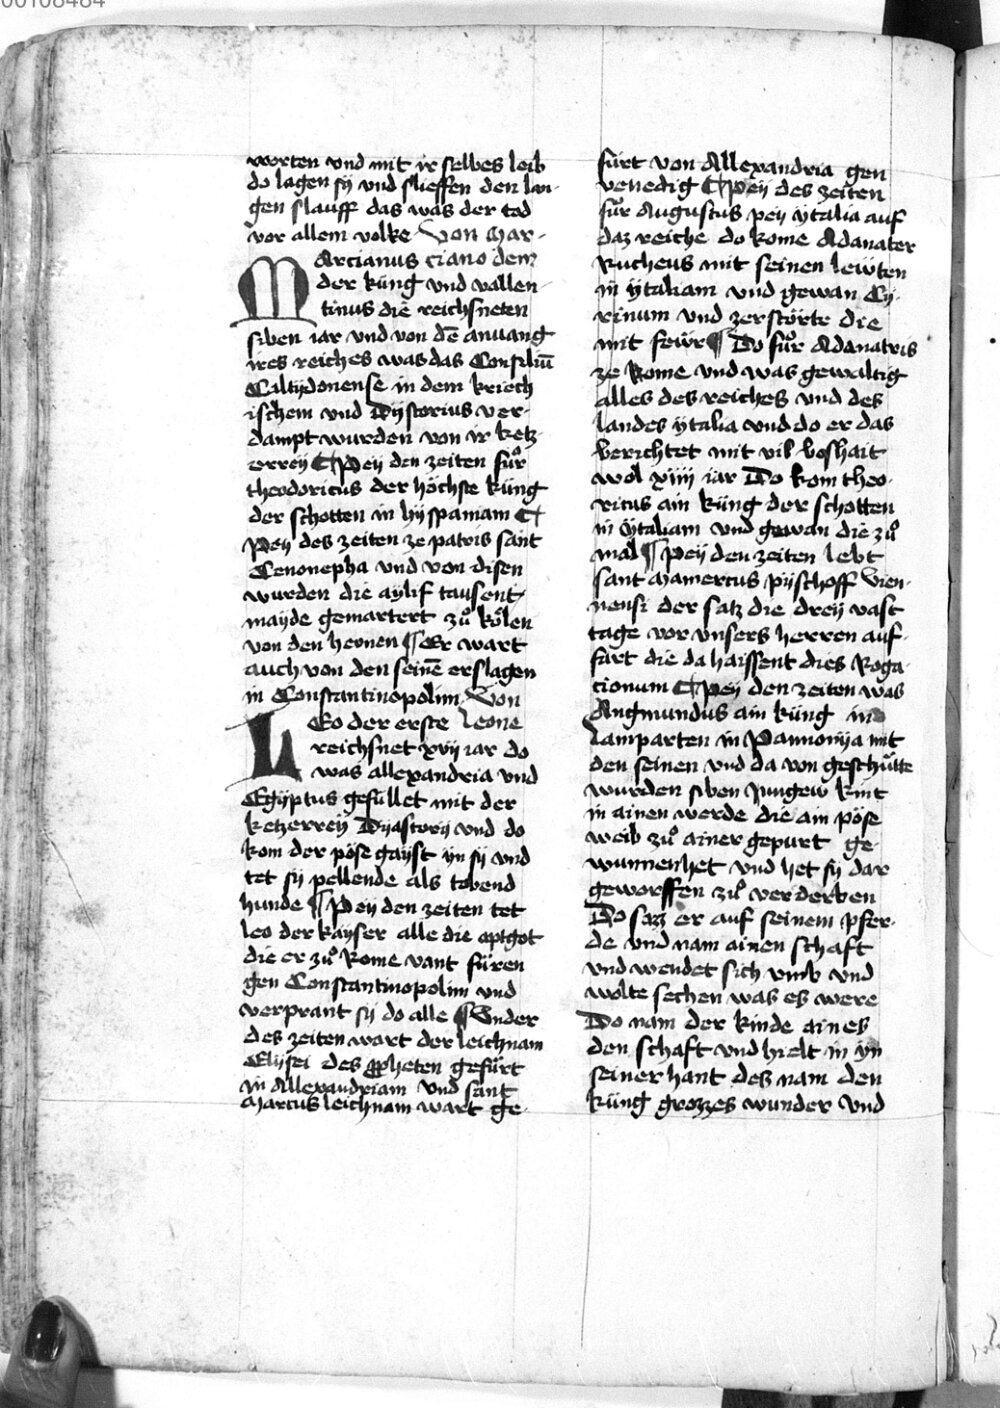 00108484
worten vnd mit ir selbes leib
do lagen sy vnd slieffen den lan-
gen slauff das was der tod
vor allem volke Von Mar-
Marcianus ciano dem
der küng vnd vallen-
tinus die reichsneten
siben iar vnd von dē anuang
ires reiches was das Consiliū
Caltzidonense in dem kriech
ischem vnd Dyscorius ver-
dampt wurden von ir ketz-
errey ¶ Pey den zeiten fuͦr
theodoricus der höchste küng
der schotten in hyspaniam ¶
Pey des zeiten ze patris sant
Cenonepha vnd von disen
wurden die aylif tausent
mayde gemartert zuͦ kölen
von den heonen ¶ Er wart
auch von den seinē erslagen
in Constantinopolim Von
Leo der erste Leone
reichsnet xvij iar do
was allexandria vnd
Egyptus gefüllet mit der
ketzerrey Dyastorij vnd do
kom der pöse gayst yn sy vnd
tet sy pellende als tobend
hunde ¶ Pey den zeiten tet
Leo der kayser alle die aptgot
die er zuͦ Rome vant füren
gen Constantinopolim vnd
verprant sy do alle ¶ Vnder
des zeiten wart der leichnam
Elysei des ꝓpheten gefürt
in Allexandriam vnd sant
Marcus leichnam wart ge-
fürt von Allexandria gen
venedig ¶ Pey des zeiten
fuͦr Augustus pey ytalia auf
daz reiche do kome Adanater
Rucheus mit seinen lewten
in ytaliam vnd gewan Cy-
rinum vnd zerstörte die
mit fewr ¶ Do fuͦr Adanatris
ze Rome vnd was gewaltig
alles des reiches vnd des
landes ytalia vnd do er das
berichtet mit vil boshait
wol xiiij iar Do kom theo-
ricus ain küng der schotten
in ytaliam vnd gewan die zuͦ
mal ¶ Pey den zeiten lebt
sant Mamercus pyschoff vien-
nensi der satz die drey vast
tage vor vnsers herren auf-
fart die da haissent dies Roga
cionum ¶ Pey den zeiten was
Angmundus ain küng in
Lamparten in Pannonya mit
den seinen vnd da von geschütte
wurden siben Jungew kint
in ainen werde die ain pöse
weib zuͦ ainer gepurt ge-
wunnen het vnd het sy dar
geworffen zuͦ verderben
Do sazz er auf seinem pfer-
de vnd nam ainen schaft
vnd wendet sich vmb vnd
wolte sechen was es were
Do nam der kinde aines
den schaft vnd hielt in yn
seiner hant des nam den
küng grozzes wunder vnd